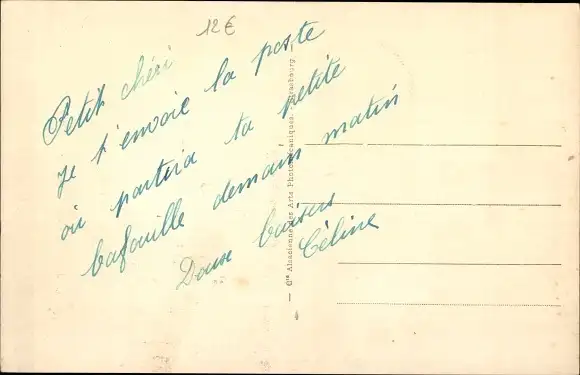 12 €
Petit chéri
je t'envoie la poste
où partira ta petite
bafouille demain matin
Douse baisers
Céline
— Cie Alsacienne des Arts Photomécaniques, Strasbourg —